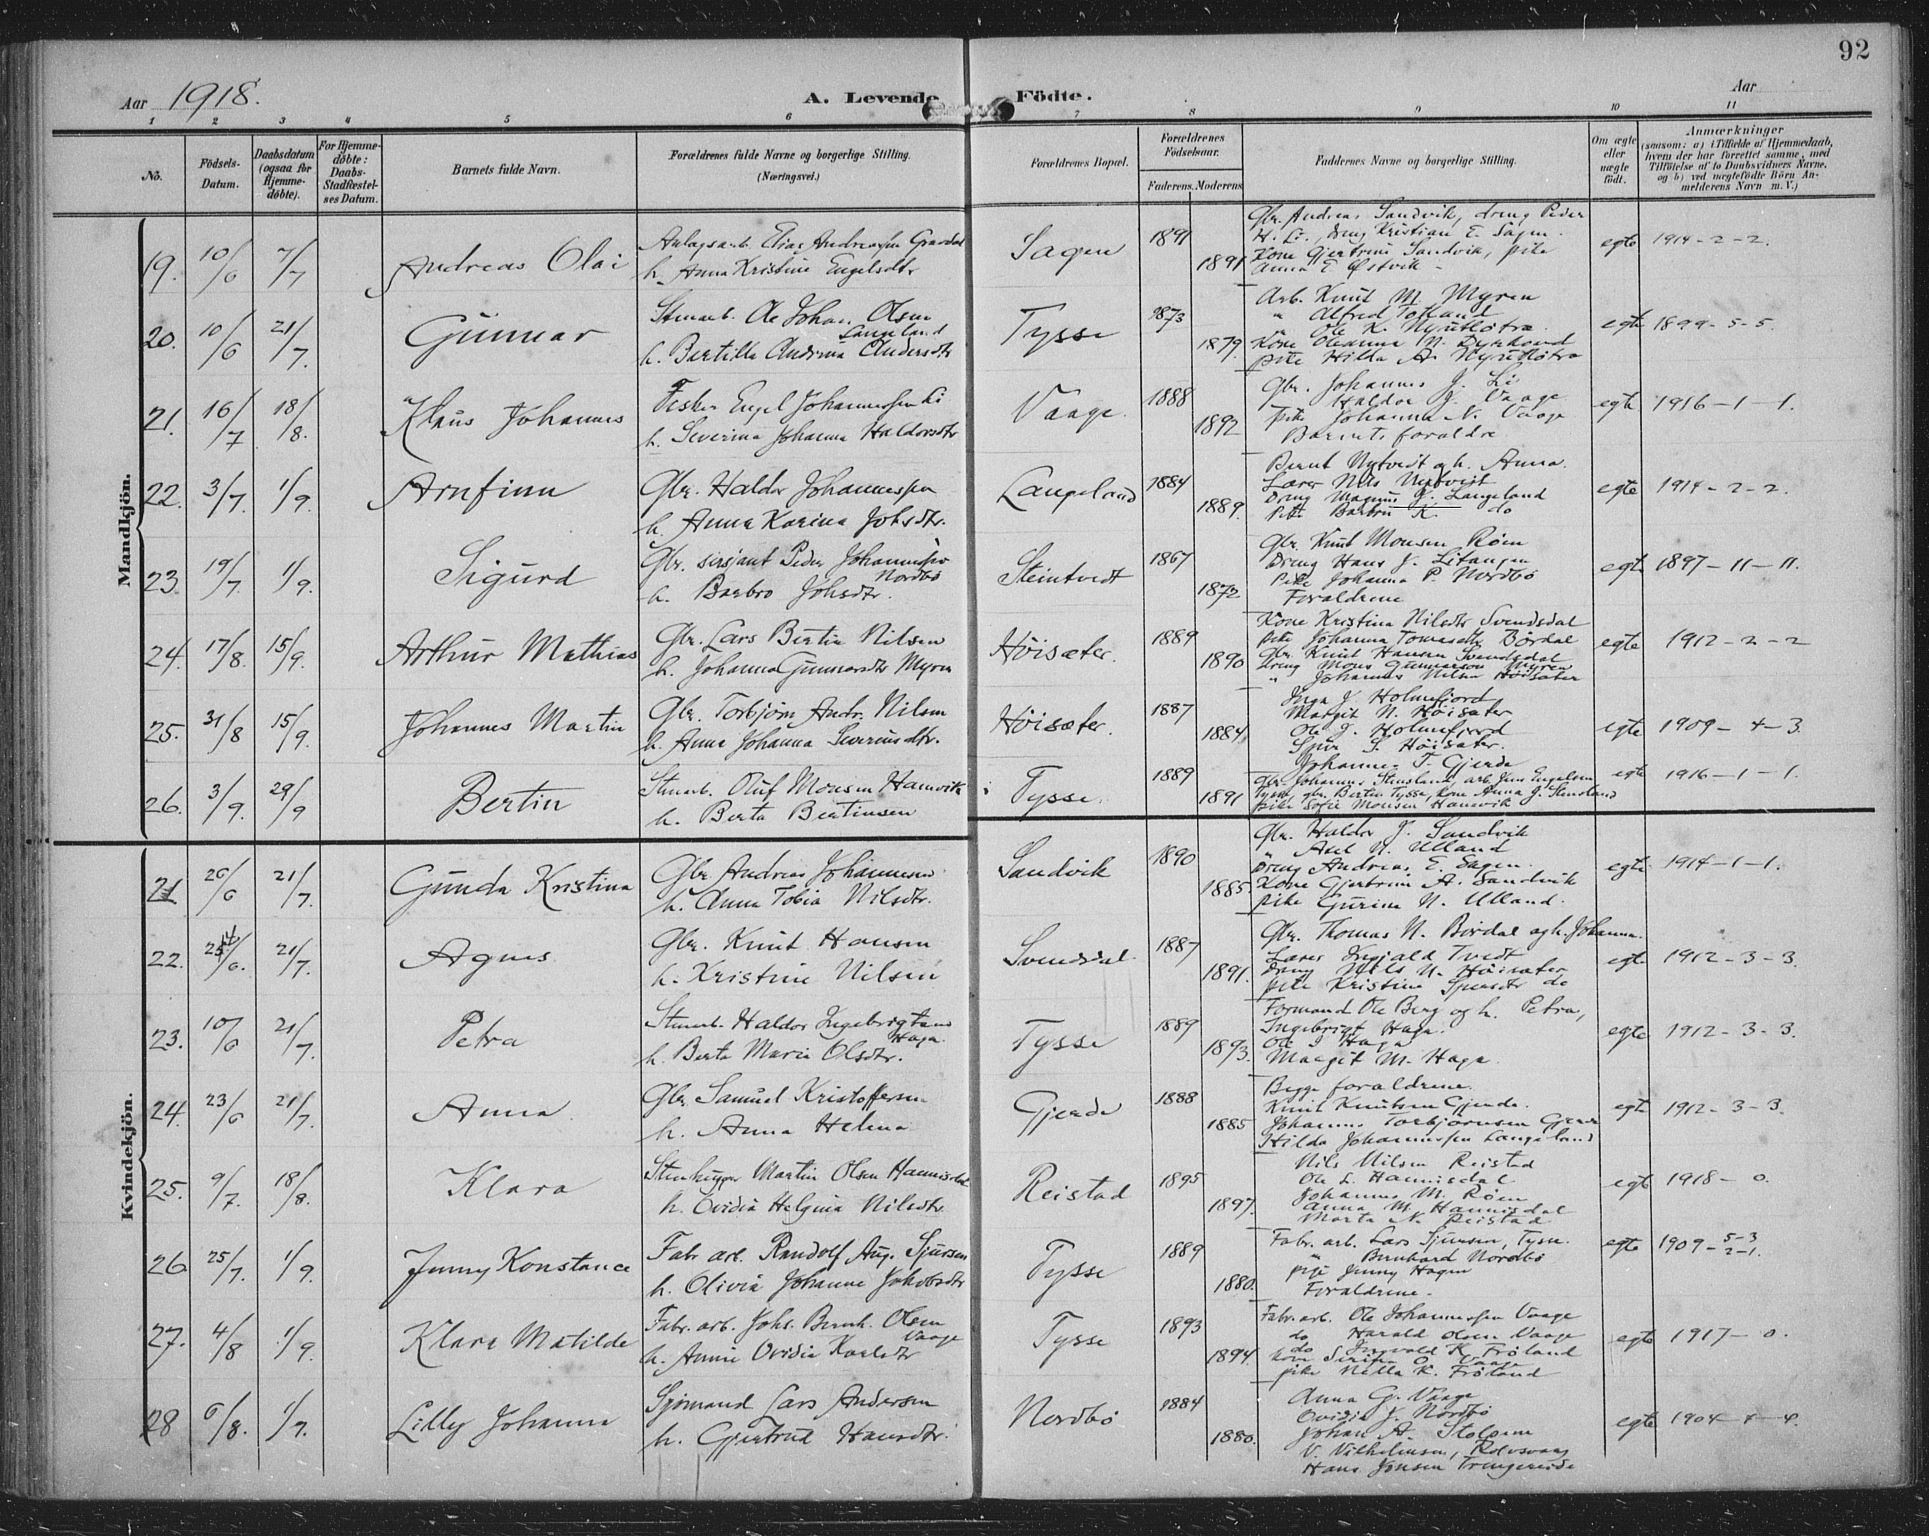 92
Aar 1918.
A. Levende Födte.
Aar
1 2 3 4 5 6 7 8 9 10 11
No.
Födsels-Datum.
Daabsdatum (ogsaa for Hjemme-döbte).
For Hjemme-döbte: Daabs-Stadfæstel-ses Datum.
Barnets fulde Navn.
Forældrenes fulde Navne og borgerlige Stilling. (Næringsvei.)
Forældrenes Bopæl.
Forældrenes Födselsaar.
Faderens. Moderens.
Faddernes Navne og borgerlige Stilling.
Om ægte eller uægte födt.
Anmærkninger
(saasom: a) i Tilfælde af Hjemmedaab, hvem der har forrettet samme, med Tilföielse af to Daabsvidners Navne, og b) ved uægtefödte Börn An-melderens Navn m. V.)
Mandkjön.
19. 10/6 7/7 Andreas Olai
Anlagsarb. Elias Andreassen
h. Anna Kristine Engelsdtr
Sagen 1891 1891
Gbr. Andreas Sandvik, dreng Peder
H. Li, dreng Kristian E. Sagen.
Kone Gjertrine Sandvik, pike
Anna E. Østvik
egte 1914-2-2.
20. 10/6 21/7. Gunnar
Stenarb. Ole Johan Olsen
Langeland
h. Bertilla Andrina Andersdtr
Tysse 1873 1879.
Arb. Knut M. Myren
" Alfred Totland
" Ole K.
Kone Oleanna N.
pike Hilda A.
egte 1899-5-5.
21. 16/7 18/8. Klaus Johannes
Fisker Engel Johannessen Li
h. Severina Johanna Haldorsdtr
Vaage. 1888 1892
Gbr. Johannes J. Li
Haldor J. Vaage
Pike Johanna N. Vaage
Barnets forældre
egte 1916-1-1.
22. 3/7. 1/9. Arnfinn
Gbr. Haldor Johannessen
h. Anna Karina Johsdtr.
Langeland 1884 1889.
Bernt Nytvedt og h. Anna.
Lærer Nils Nytveit
Dreng Magnus J. Langeland
Pike Barbru K. do
egte 1914-2-2.
23. 19/7. 1/9. Sigurd
Gbr. sersjant Peder Johannessen
Nordbö
h. Barbro Johsdtr.
Steintvedt 1867 1872
Gbr. Knut Monsen Röen
Dreng Hans J.
Pike Johanna P. Nordbö
Forældrene
egte 1897-11-11.
24. 17/8. 15/9. Arthur Mathias
Gbr. Lars Bertin Nilsen
h. Johanna Gunnarsdtr Myren
Höisæter. 1889 1890
Kone Kristina Nilsdtr Svendsdal
pike Johanna Tomasdtr Bördal
Gbr. Knut Hansen Svendsdal
Dreng Mons Gunnarson Myren
" Johannes Nilsen Höisæter
egte 1912-2-2
25. 31/8 15/9. Johannes Martin
Gbr. Torbjörn Andr. Nilsen
h. Anna Johanna Severinsdtr.
Höisæter. 1887 1884
Inga J. Holmefjord
Margit N. Höisæter
Ole J. Holmefjord
Sjur S. Höisæter.
Johannes T. Gjerde
egte 1909-4-3.
26. 3/9. 29/9 Bertin
Stenarb. Oluf Monsen Hamvik
h. Berta Bertinsen
i Tysse. 1889 1891
Gbr. Johannes Stensland, arb. Jens Engelsen
Tysse, gbr. Bertin Tysse, kone Anna J. Stensland
pike Sofie Monsen Hamvik
egte 1916-1-1.
Kvindekjön.
21 26/6 21/7. Gunda Kristina
Gbr Andreas Johannessen
h. Anna Tobia Nilsdtr.
Sandvik 1890 1885
Gbr. Haldor J. Sandvik
" Axel N. Ulland
Dreng Andreas E. Sagen.
Kone Gjertrine A. Sandvik
pike Gurine N. Ulland.
egte 1914-1-1.
22. 6. 21/7. Agnes
Gbr. Knut Hansen
h. Kristine Nilsen
Svendsdal. 1887 1891.
Gbr. Thomas N. Bördal og h. Johanna.
Lærer Ingjald Tvedt
Dreng Nils N. Höisæter
pike Kristine Sjursdtr do
egte 1912-3-3.
23. 10/6 21/7. Petra
Stenarb. Haldor Ingebrigtsen
Haga.
h. Berta Maria Olsdtr.
Tysse 1889 1893.
Formand Ole Berg og h. Petra,
Ingebrigt Haga.
Ole I Haga
Margit M. Haga.
egte 1912-3-3.
24. 23/6 21/7. Anna
Gbr Samuel Kristoffersen
h. Anna Helena
Gjerde 1888 1885
Begge forældrene.
Knut Knutsen Gjerde.
Johannes Torbjörnsen Gjerde
Hilda Johannessen Langeland
egte 1912-3-3.
25. 9/7. 18/8. Klara
Stenhugger Martin Olsen Hannisdal
h. Ovidia Helgina Nilsdtr
Reistad 1895 1897.
Nils Nilsen Reistad
Ole L. Hannisdal
Johannes M. Röen
Anna M. Hannisdal
Marta N. Reistad.
egte 1918-0.
26 25/7. 1/9. Jenny Konstance
Fabr arb. Randolf Aug. Sjursen
h. Olivia Johanne Jakobsdtr
Tysse 1889 1880.
Fabr. arb. Lars Sjursen, Tysse.
" Bernhard Nordbö
pige Jenny Hagen
Forældrene.
egte 1909-5-3
2-1.
27. 4/8 1/9. Klara Matilde
Fabr. arb. Johs. Bernh. Olsen
Vaage
h. Anna Ovidia Karlsdtr
Tysse 1893 1894.
Fabr. arb. Ole Johannessen Vaage
do Harald Olsen Vaage
do Ingvald K. Fröland
Kone Serina O. Vaage
pike Nella K. Fröland
egte 1917-0.
28 6/8. 1/9. Lilly Johanna
Sjömand Lars Andersen
h. Gjertrud Hansdtr.
Nordbö 1884 1880.
Anna G. Vaage
Ovidia J. Nordbö
Johan A. Stolsen
V. Vilhelmsen, Rolvsvaag
Hans Jonsen Trengereide
egte 1904-4-4.